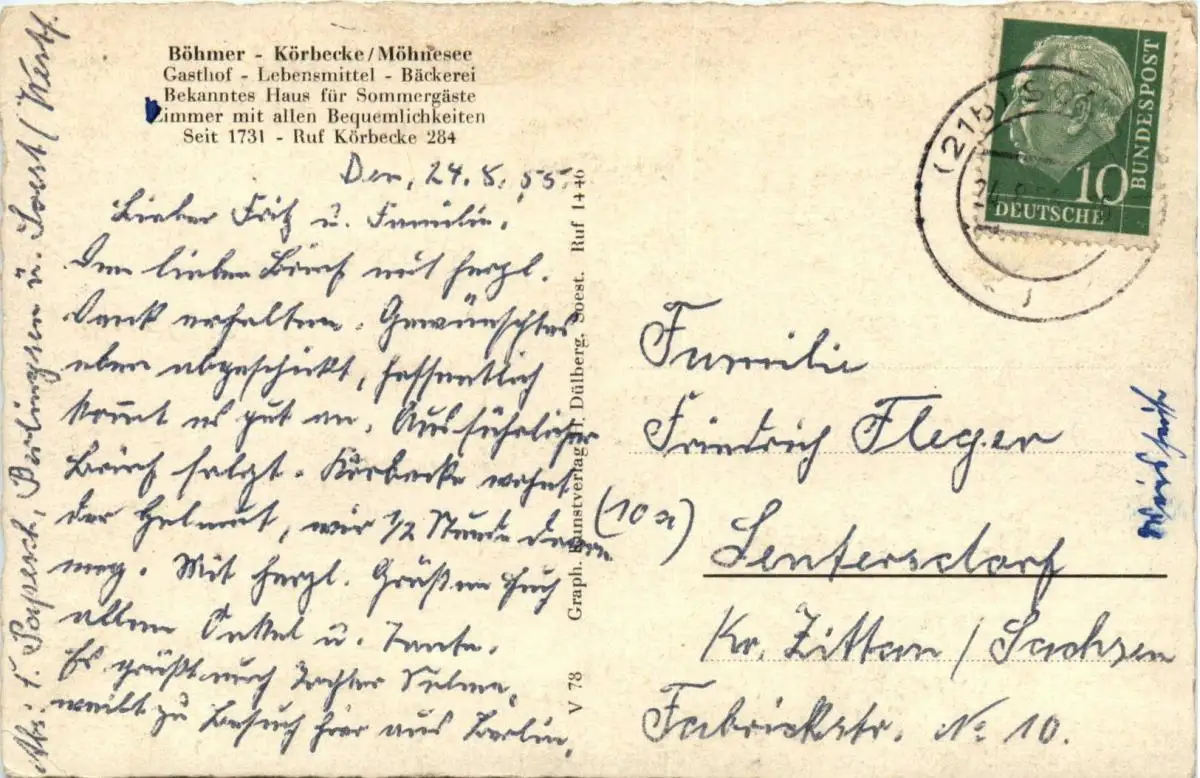 Böhmer - Körbecke/Möhnesee
Gasthof - Lebensmittel - Bäckerei
Bekanntes Haus für Sommergäste
Zimmer mit allen Bequemlichkeiten
Seit 1731 - Ruf Körbecke 284
Den, 24.8.55.
Lieber Fritz u. Familie!
Den lieben Brief mit herzl.
Dank erhalten. Gewünschtes
eben abgeschickt, hoffentlich
kommt es gut an. Ausführlicher
Brief folgt. Körbecke wohnt
der Helmut, wir 1/2 Stunde davon
weg. Mit herzl. Grüßen Euch
allen Onkel u. Tante.
Es grüßt auch Tochter
weilt zu Besuch hier aus Berlin.
Abs. Berlingsen ü. Soest/Westf.
V 78 Graph. Kunstverlag H. Dülberg, Soest. Ruf 1446
(21b) Soest
24.8.55
10
DEUTSCHE
BUNDESPOST
Familie
Friedrich Fleger
(10a)
Kr. Zittau/Sachsen
Fabrikstr. No 10.